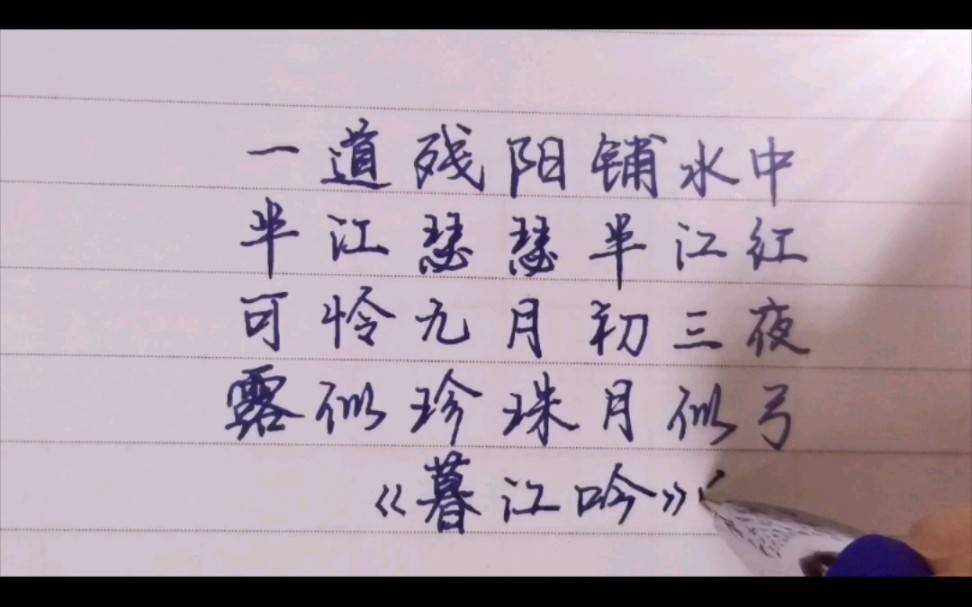 一道残阳铺水中
半江瑟瑟半江红
可怜九月初三夜
露似珍珠月似弓
《暮江吟》